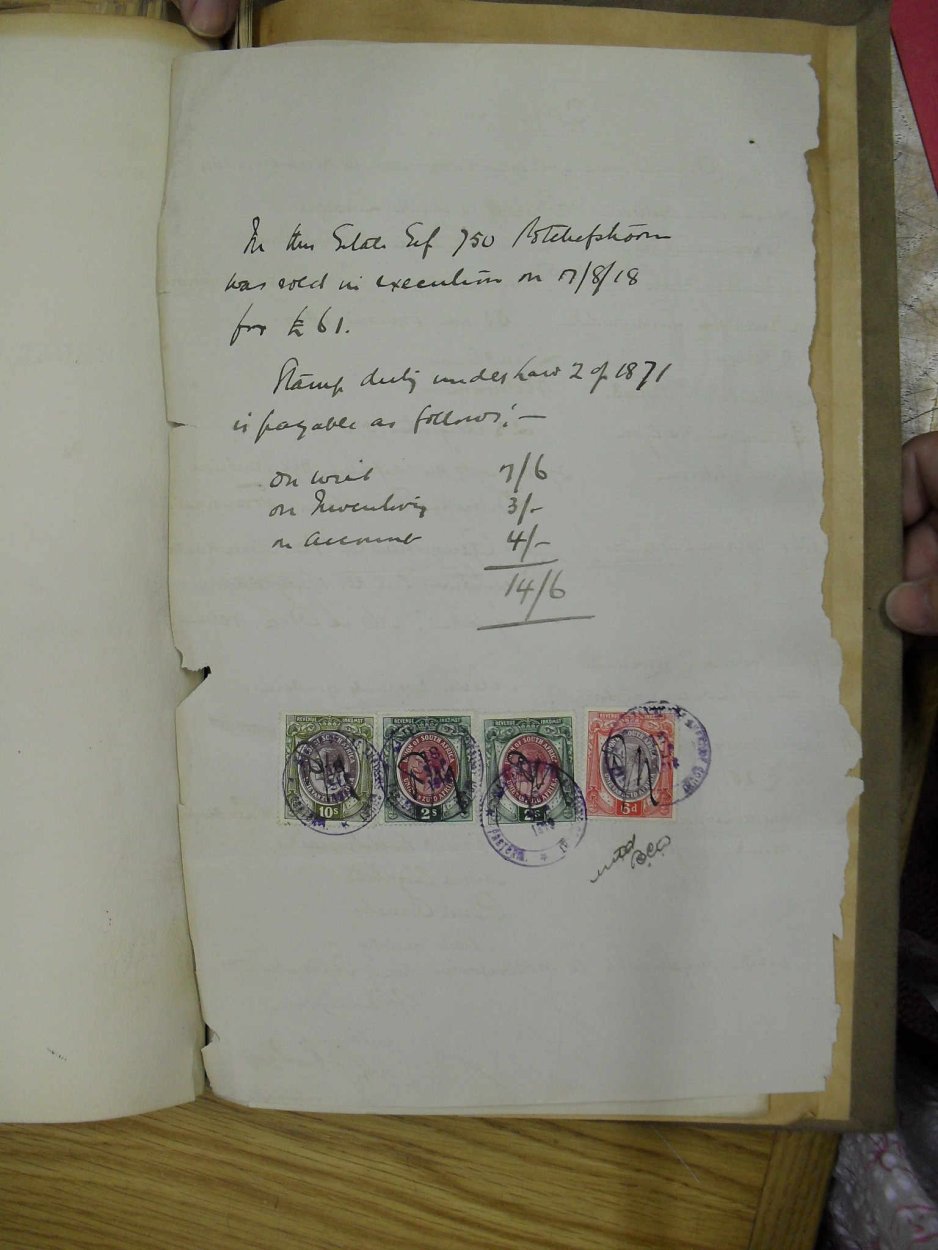 In this Estate Erf 750 Potchefstroom
was sold in execution on 7/8/18
for £61.
Stamp duty under Law 2 of 1871
is payable as follows:—
on writ 7/6
on Inventory 3/-
on Account 4/-
14/6
REVENUE INKOMST
10s
REVENUE INKOMST
UNION OF SOUTH AFRICA
2s
REVENUE INKOMST
2s
REVENUE INKOMST
UNION OF SOUTH AFRICA
6d
noted